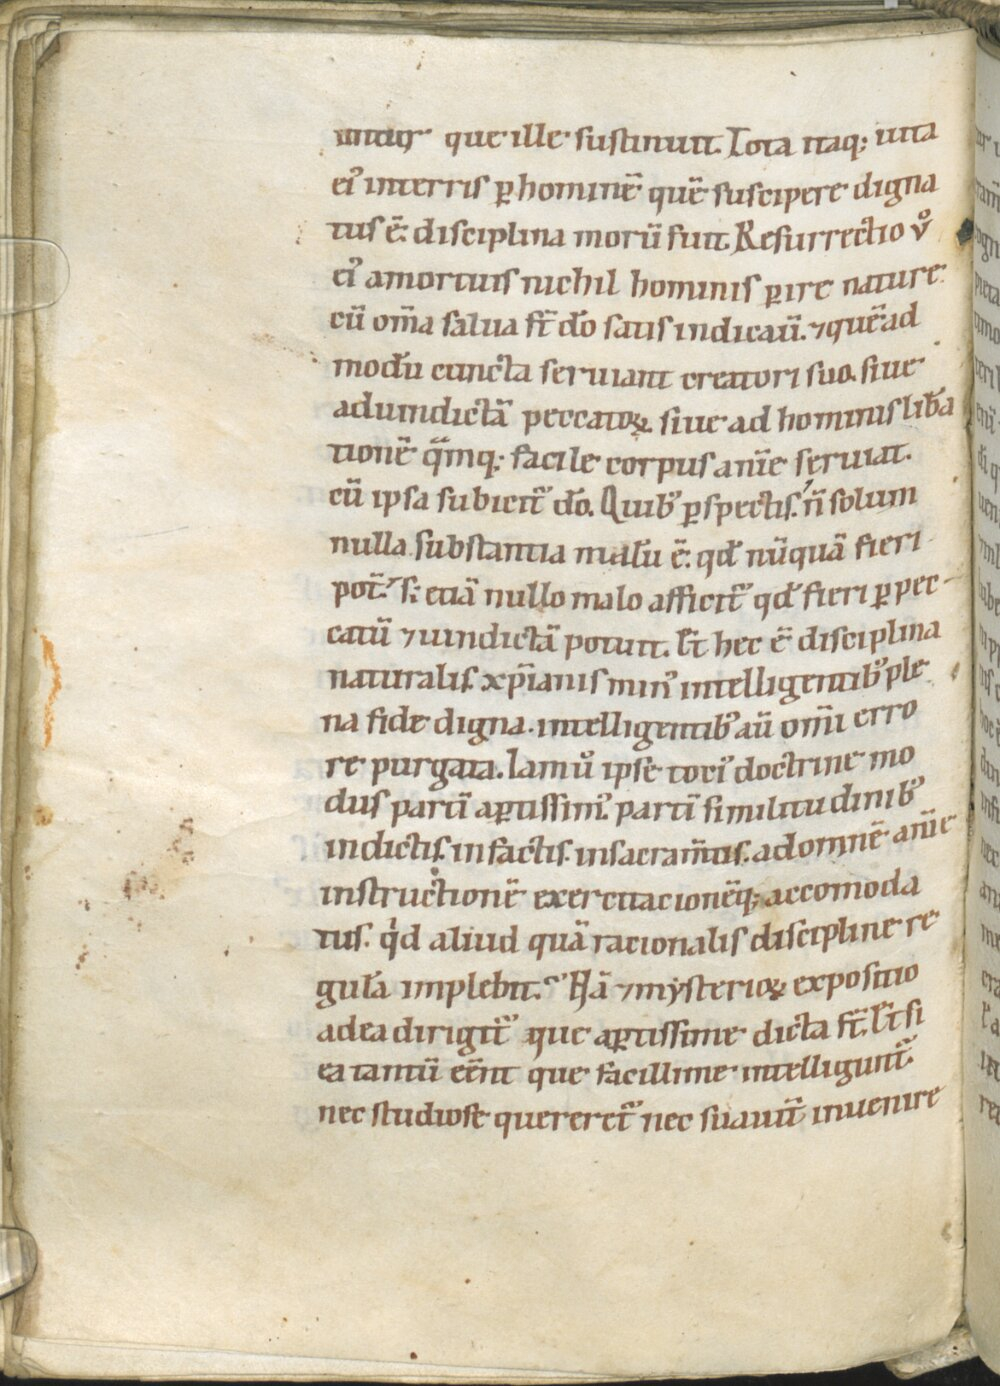 untur que ille sustinuit. Tota itaq; uita
ei᾽ interris ꝑ hominē quē suscipere digna
tus ē. disciplina morū fuit. Resurrectio v̊
ei᾽ amortuis nichil hominis ꝑire nature
cū om̄a salua st̄ dō satis indicauit. ⁊ quēad
modū cuncta seruiant creatori suo. siue
aduindictā peccatoꝝ. siue ad hominis lib̄a
tionē. q̄mq; facile corpus anīe seruiat.
cū ipsa subicit᾽ dō. Quib᾽ ꝑspectis. n̄ solum
nulla substantia malū ē. qd̄ nūquā fieri
pot̄. s; etiā nullo malo afficit᾽ qd̄ fieri ꝑ pec-
catū ⁊ uindictā potuit. Et hec ē disciplina
naturalis. xp̄ianis min᾽ intelligentib᾽ ple
na fide digna. intelligentib᾽ aū omī erro
re purgata. Iam ů ipse toti᾽ doctrine mo
dus partī aꝑtissim᾽. partī similitudinib᾽
indictis. infactis. insacram̄tis. adomnē anīe
instructionē exercitacionēq; accomoda
tus. qd aliud quā racionalis discipline re
gulā implebit. Nā ⁊ mẏsterioꝝ expositio
adea dirigit᾽ que aꝑtissime dicta st̄. Et si
ea tantū eēnt que facillime intelligunt᾽
nec studiose quereret᾽ nec suauit̄ inuenire